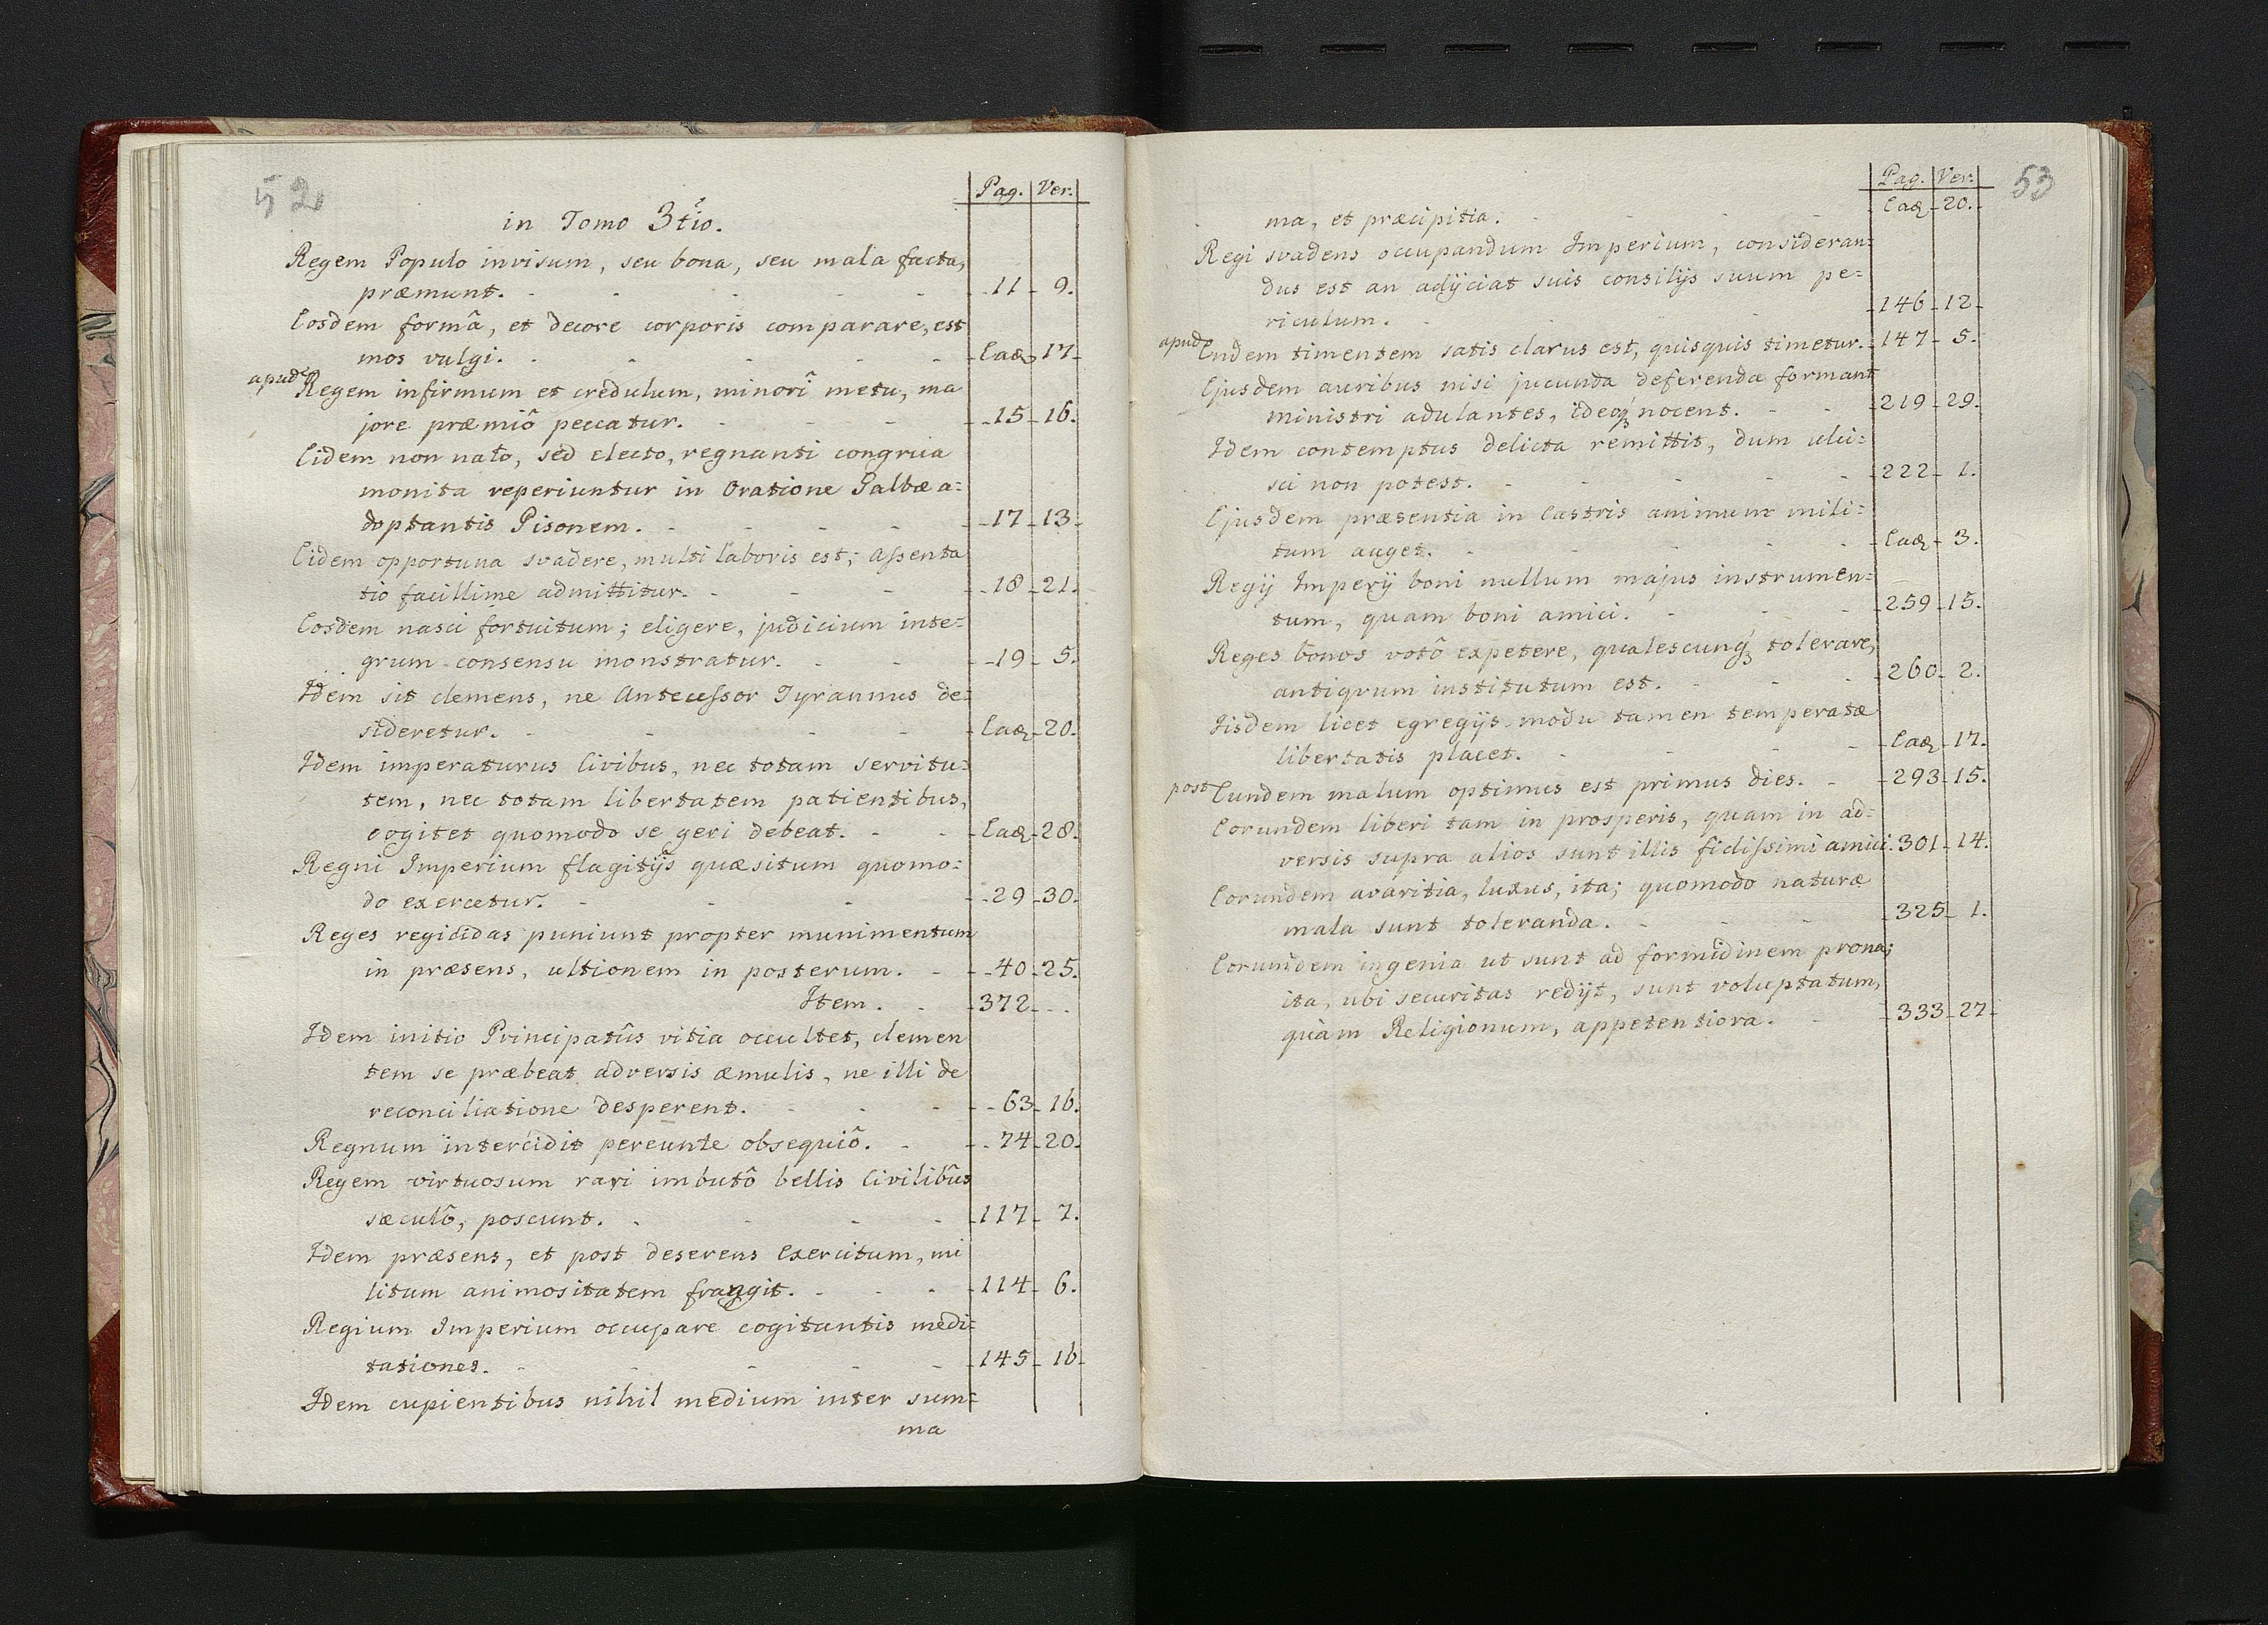 52
Pag. Ver.
in Tomo 3tio.
Regem Populo invisum, seu bona, seu mala facta,
præmunt. - 11 - 9.
Eosdem formâ, et decore corporis comparare, est
mos vulgi. - Ead. 17.
apud Regem infirmum et credulum, minori metu, ma
jore præmiô peccatur. - 15 - 16.
Eidem non nato, sed electo, regnanti congrua
monita reperiuntur in Oratione Galbæ a=
doptantis Pisonem. - 17 - 13.
Eidem opportuna svadere, multi laboris est; Assenta
tio facillime admittitur. - 18 - 21.
Eosdem nasci fortuitum; eligere, judicium inte=
grum consensu monstratur. - 19 - 5.
Idem sit clemens, ne Antecessor Tyrannus de=
sideretur. - Ead. - 20.
Idem imperaturus Civibus, nec totam servitu=
tem, nec totam libertatem patientibus,
cogitet quomodo se geri debeat. - Ead. - 28.
Regni Imperium flagitijs quæsitum quomo=
do exercetur. - 29 - 30.
Reges regicidas puniunt propter munimentum
in præsens, ultionem in posterum. - 40 - 25.
Item. - 372 - -
Idem initio Principatûs vitia occultet, clemen
tem se præbeat adversis æmulis, ne illi de
reconciliatione desperent. - 63 - 16.
Regnum intercidit pereunte obsequiô. - 74 - 20.
Regem virtuosum rari imbutô bellis Civilibus
sæculô, poscunt. - 117 - 7.
Idem præsens, et post deserens Exercitum, mi
litum animositatem frangit. - 114 - 6.
Regium Imperium occupare cogitantis medi=
tationes. - 145 - 16
Idem cupientibus nihil medium inter sum=
ma
53
Pag. Ver.
ma, et præcipitia. - Ead. - 20.
Regi svadens occupandum Imperium, consideran=
dus est an adijciat suis consilijs suum pe=
riculum. - 146 - 12
apud Eundem timentem satis clarus est, quisquis timetur. - 147 - 5.
Ejusdem auribus nisi jucunda deferenda formant
ministri adulantes, ideoq nocent. - 219 - 29.
Idem contemptus delicta remittit, dum ulci=
sci non potest. - 222 - 1.
Ejusdem præsentia in Castris animum mili=
tum auget. - Ead. - 3.
Regij Imperij boni nullum majus instrumen=
tum, quam boni amici. - 259 - 15.
Reges bonos votô expetere, qualescunq tolerare,
antiqvum institutum est. - 260 - 2.
Iisdem licet egregijs modu tamen temperatæ
libertatis placet. - Ead. - 17.
post Eundem malum optimus est primus dies. - 293 - 15.
Eorundem liberi tam in prosperis, quam in ad=
versis supra alios sunt illis fidissimi amici. 301 - 14.
Eorundem avaritia, luxus, ita; quomodo naturæ
mala sunt toleranda. - 325 - 1.
Eorundem ingenia ut sunt ad formidinem prona;
ita, ubi securitas redijt, sunt voluptatum,
quàm Religionum, appetentiora. - 333 - 27